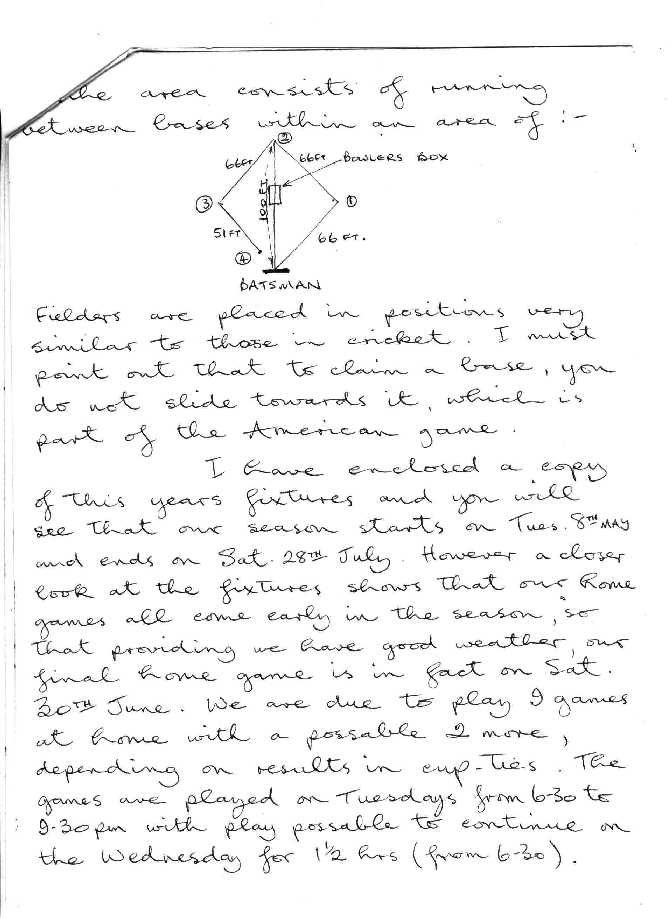 the area consists of running
between bases within an area of :-
②
66FT 66FT BOWLERS BOX
③ 100FT ①
51FT 66 FT.
④
BATSMAN
Fielders are placed in positions very
similar to those in cricket. I must
point out that to claim a base, you
do not slide towards it, which is
part of the American game.
I have enclosed a copy
of this years fixtures and you will
see that our season starts on Tues. 8TH MAY
and ends on Sat. 28TH July. However a closer
look at the fixtures shows that our home
games all come early in the season, so
that providing we have good weather, our
final home game is in fact on Sat.
30TH June. We are due to play 9 games
at home with a possable 2 more,
depending on results in cup-ties. The
games are played on Tuesdays from 6-30 to
9-30pm with play possable to continue on
the Wednesday for 1½ hrs (from 6-30).